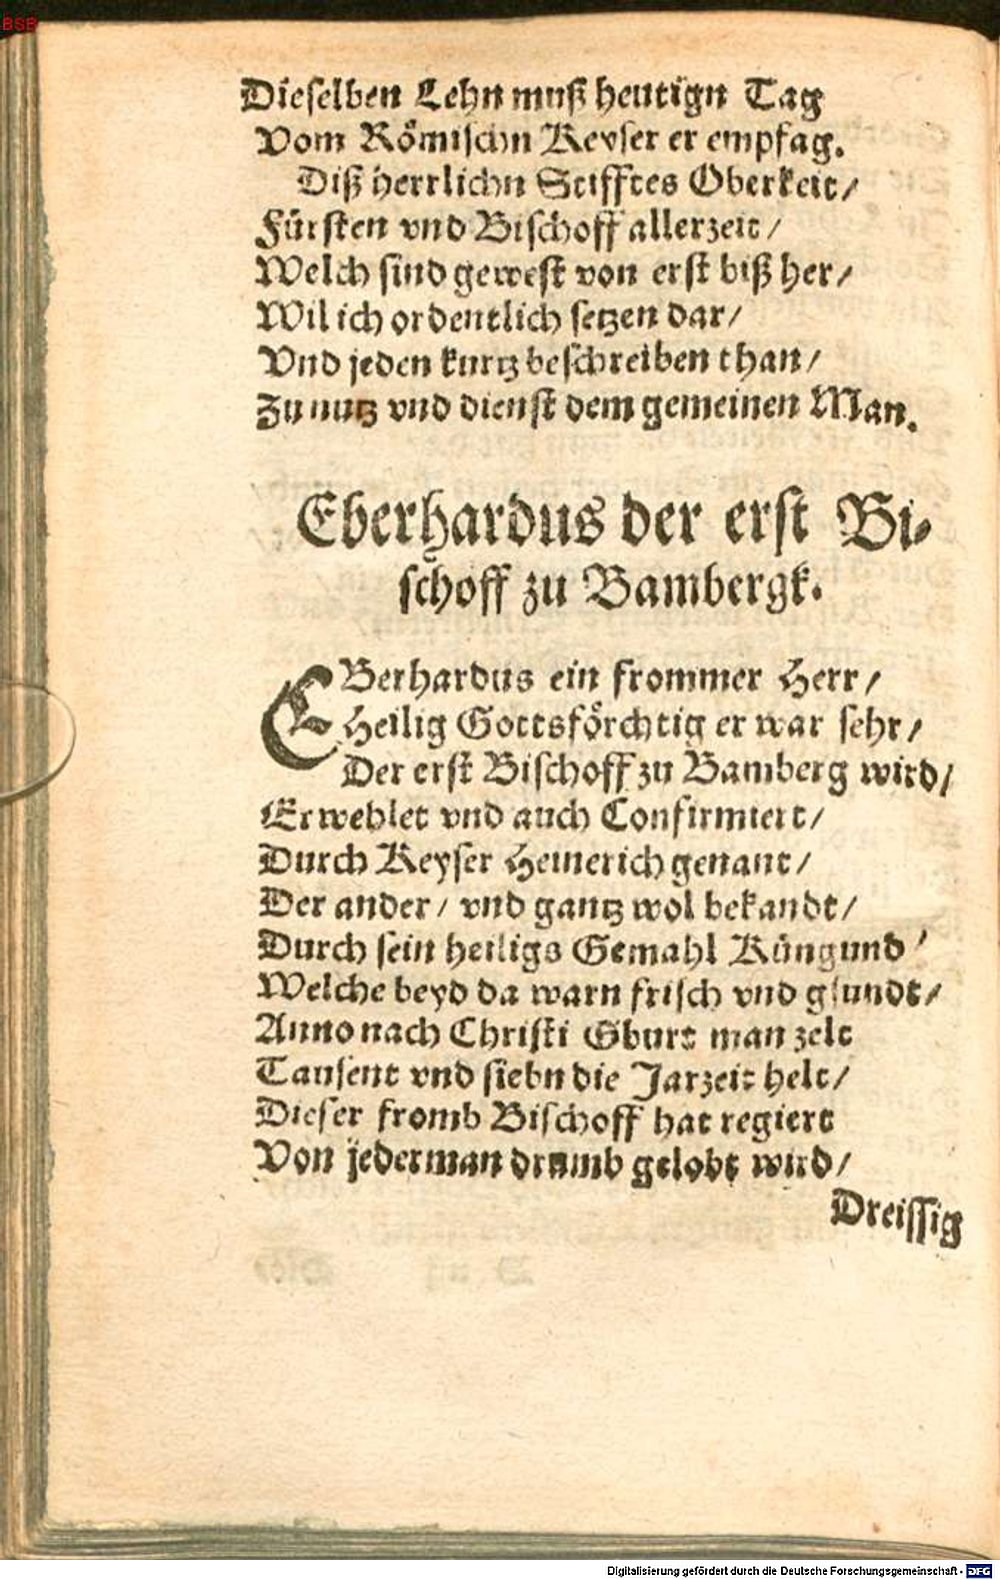 BSB
Dieselben Lehn muß heutign Tag
Vom Römischn Keyser er empfag.
Diß herrlichn Stifftes Oberkeit/
Fürsten vnd Bischoff allerzeit/
Welch sind gewest von erst biß her/
Wil ich ordentlich setzen dar/
Vnd jeden kurtz beschreiben than/
Zu nutz vnd dienst dem gemeinen Man.
Eberhardus der erst Bi-
schoff zu Bambergk.
EBerhardus ein frommer Herr/
Heilig Gottsförchtig er war sehr/
Der erst Bischoff zu Bamberg wird/
Erwehlet vnd auch Confirmiert/
Durch Keyser Heinerich genant/
Der ander/ vnd gantz wol bekandt/
Durch sein heiligs Gemahl Küngund/
Welche beyd da warn frisch vnd gsundt/
Anno nach Christi Gburt man zelt
Tausent vnd siebn die Jarzeit helt/
Dieser fromb Bischoff hat regiert
Von jederman drumb gelobt wird/
Dreissig
Digitalisierung gefördert durch die Deutsche Forschungsgemeinschaft - DFG